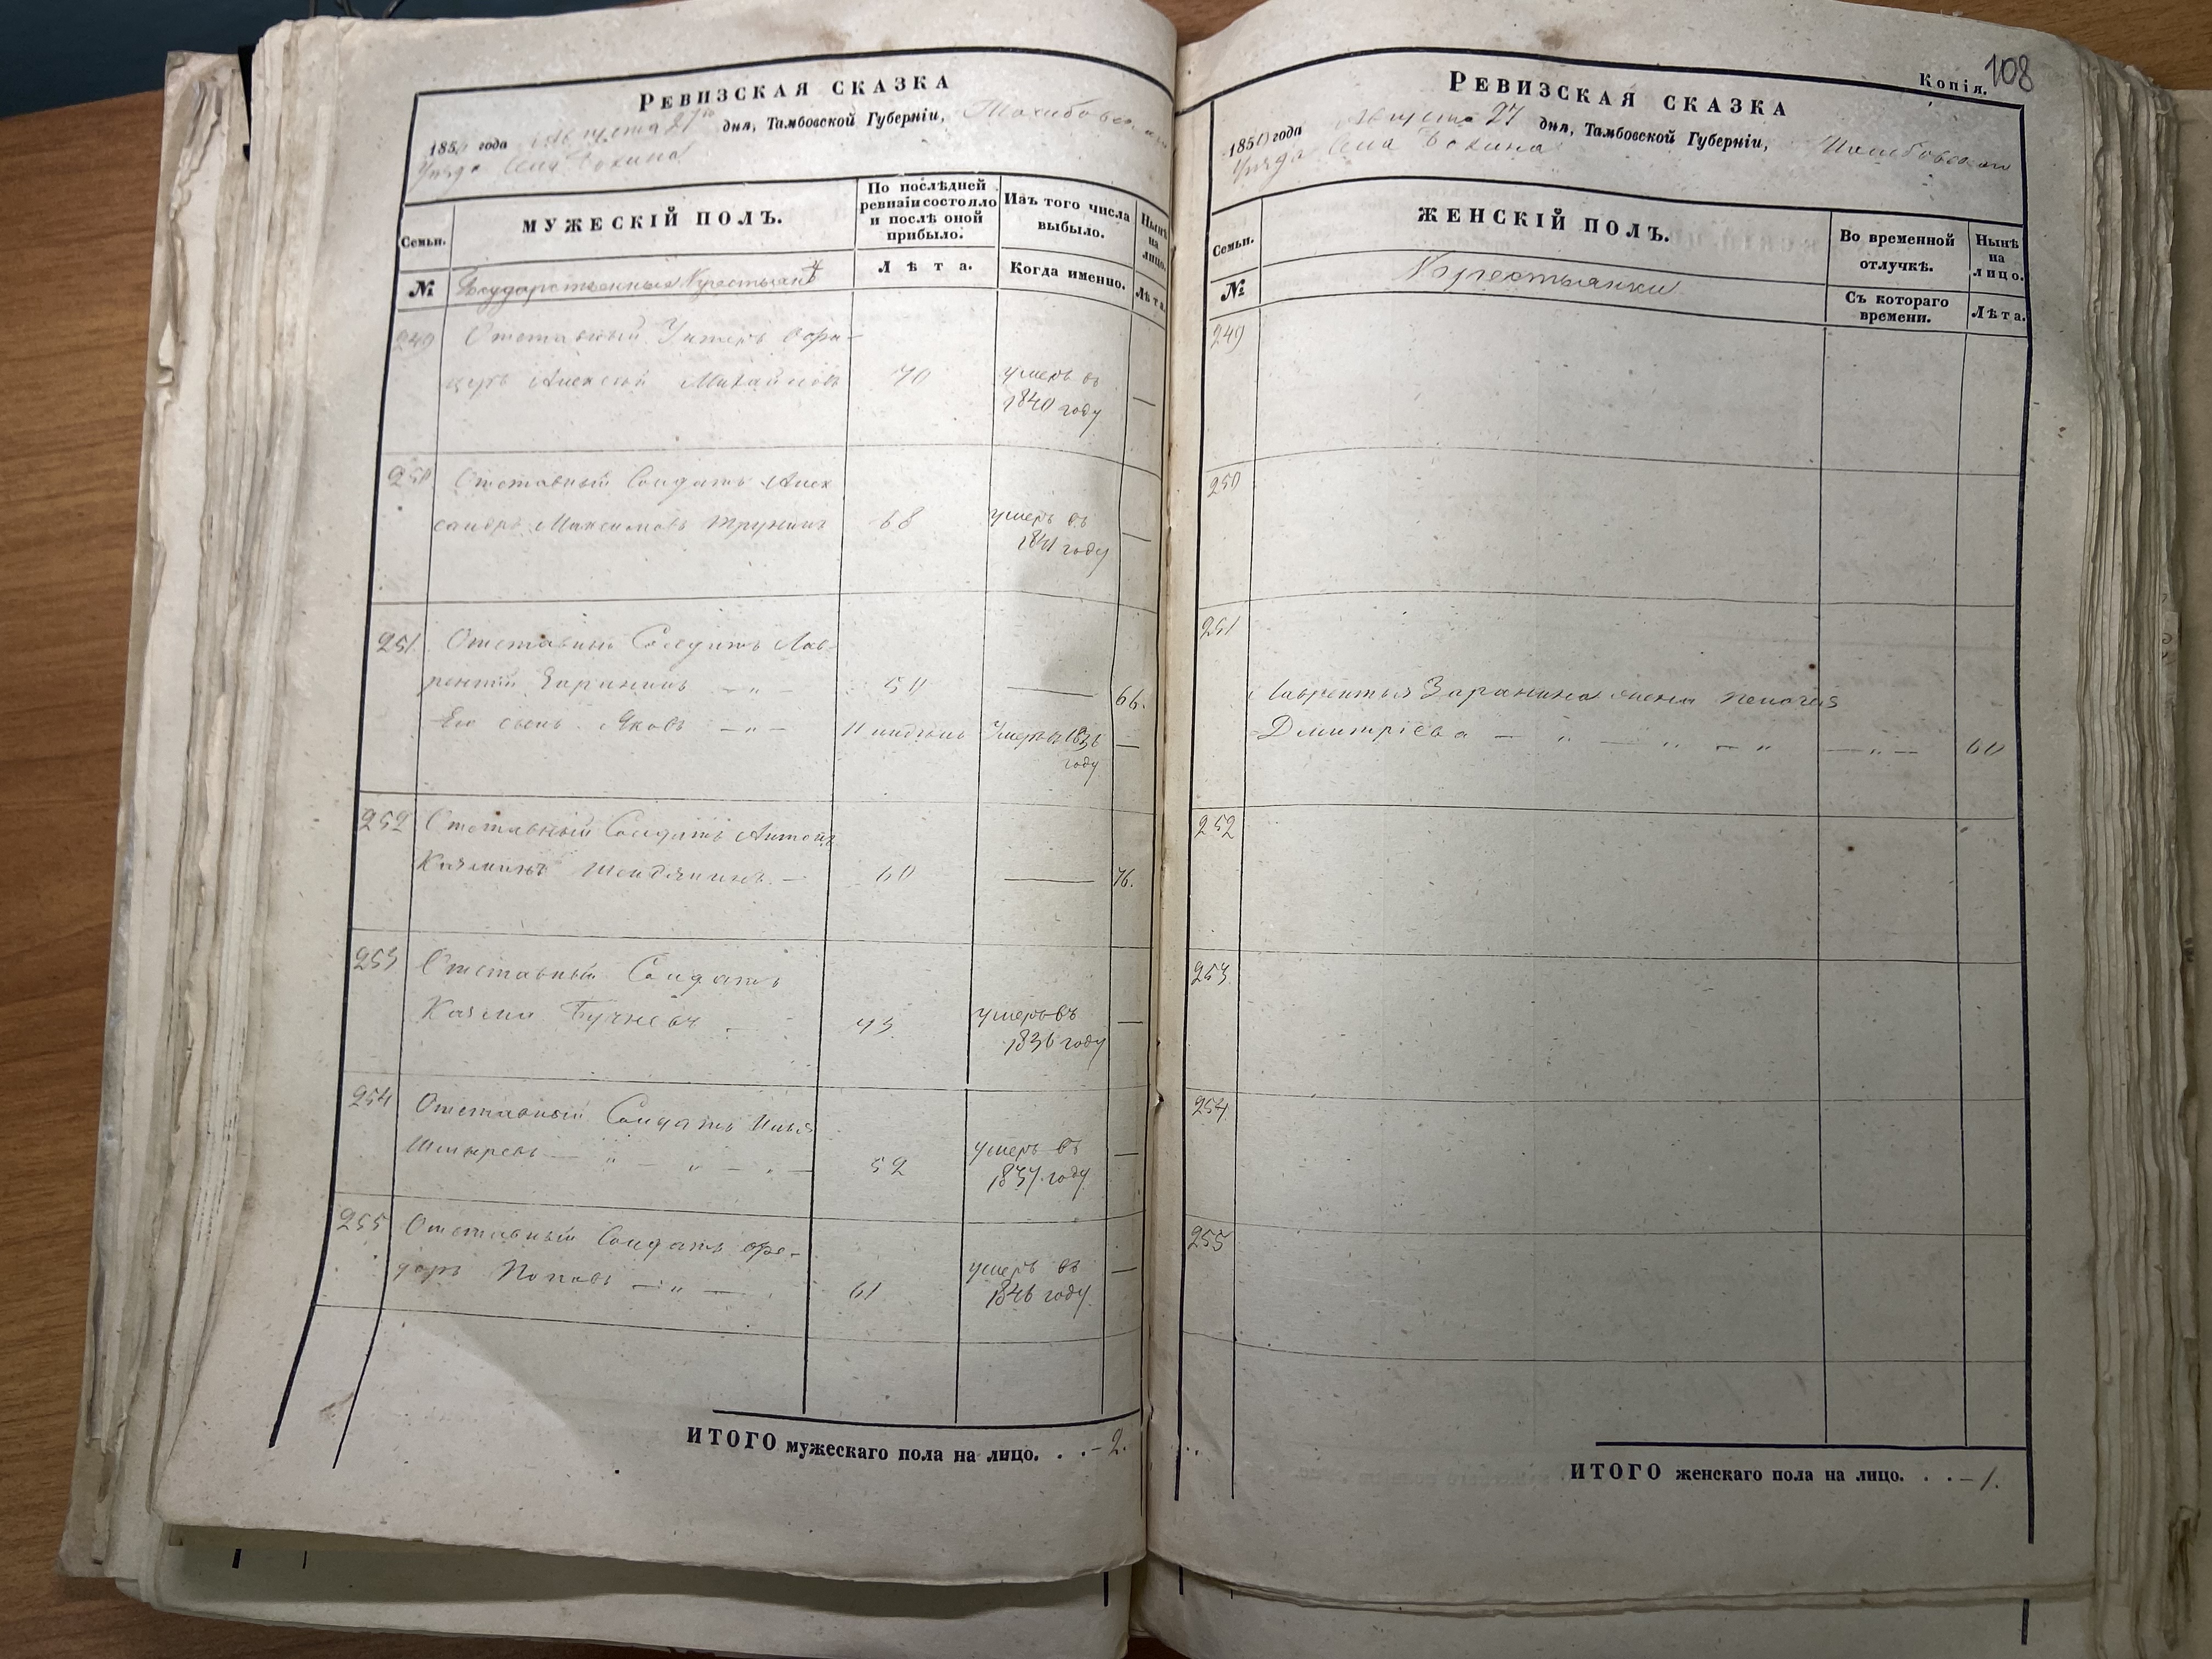 РЕВИЗСКАЯ СКАЗКА
1850 года Августа 27го дня, Тамбовской Губерніи,
Уѣзда Села
Семьи.
МУЖЕСКІЙ ПОЛЪ.
По послѣдней
ревизіи состояло
и послѣ оной
прибыло.
Изъ того числа
выбыло.
Нынѣ
на
лицо.
№
Государственные Крестьяне
Лѣта.
Когда именно.
Лѣта.
249 Отставный Унтеръ офи-
церъ Алексей Михайловъ 70 умеръ въ —
1840 году
250 Отставный Солдатъ Алек
сандръ Максимовъ Трунинъ 68 умеръ въ —
1841 году
251 Отставный Солдатъ Лав-
рентій Заранинъ — „ — 50 — 66.
Его сынъ Яковъ — „ — 11 Умеръ 1836 —
году
252 Отставный Солдатъ Антонъ
60 — 76.
253 Отставный Солдатъ
Казма 43 умеръ въ —
1836 году
254 Отставный Солдатъ Илья
Шмыревъ — „ — „ — „ — 52 умеръ въ —
1837 году
255 Отставный Солдатъ Фе-
доръ Поповъ — „ — 61 умеръ въ —
1846 году
ИТОГО мужескаго пола на лицо. . . — 2.
Копія. 108
РЕВИЗСКАЯ СКАЗКА
1850 года Августа 27 дня, Тамбовской Губерніи,
Уѣзда Села
Семьи.
ЖЕНСКІЙ ПОЛЪ.
Во временной
отлучкѣ.
Нынѣ
на
лицо.
№
Крестьянки
Съ котораго
времени.
Лѣта.
249
250
251
Лаврентья Заранина жена Пелагея
Дмитріева — „ — „ — „ — „ — 60
252
253
254
255
ИТОГО женскаго пола на лицо. . . — 1.